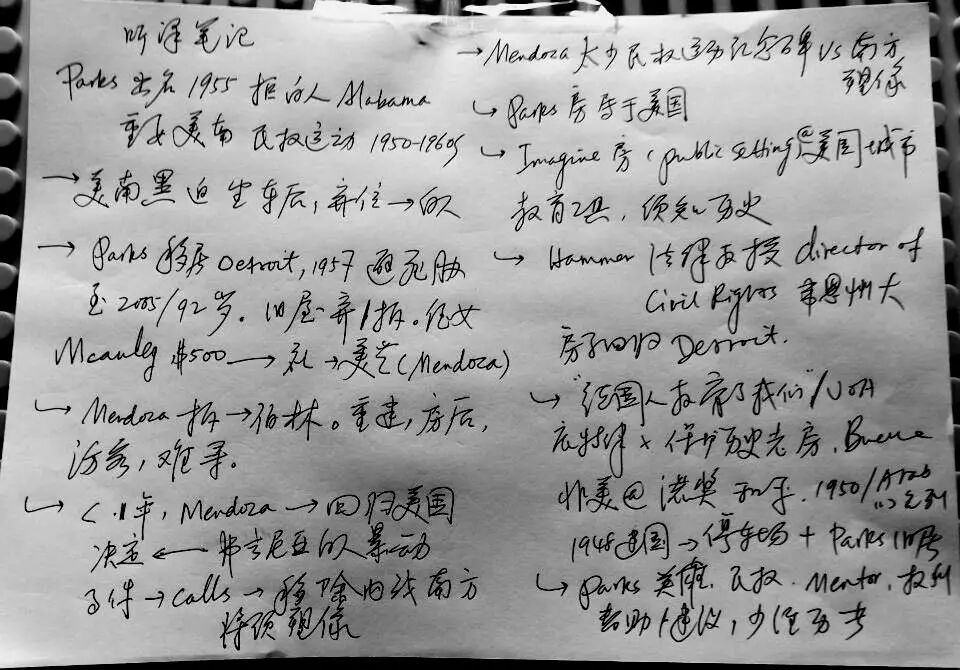 听译笔记
Parks 出名 1955 拒白人 Alabama
重要美南 民权运动 1950-1960s
→ 美南黑迫坐车后, 弃位→白人
→ Parks 移居 Detroit, 1957 避死胁
至2005/92岁。旧屋弃/拆。侄女
Mcauley $500 → 礼→美艺(Mendoza)
Mendoza 拆→伯林。重建, 房后,
访客, 难寻。
<1年, Mendoza → 回归美国
决定 ← 弗吉尼亚白人暴动
事件→calls→移除内战南方
将领塑像
→ Mendoza 太少民权运动纪念碑 vs 南方
塑像
Parks 房属于美国
Imagine 房 (public setting) @美国城市
教育工具, 须知历史
Hammer 法律教授 director of
Civil Rights 韦恩州大
房子回归 Detroit.
"德国人教育了我们" /
底特律 × 保护历史老房.
非美@诺奖和平. 1950/Arab
1948建国→停车场 + Parks 旧居
Parks 英雄. 民权. Mentor. 权利
帮助/建议,